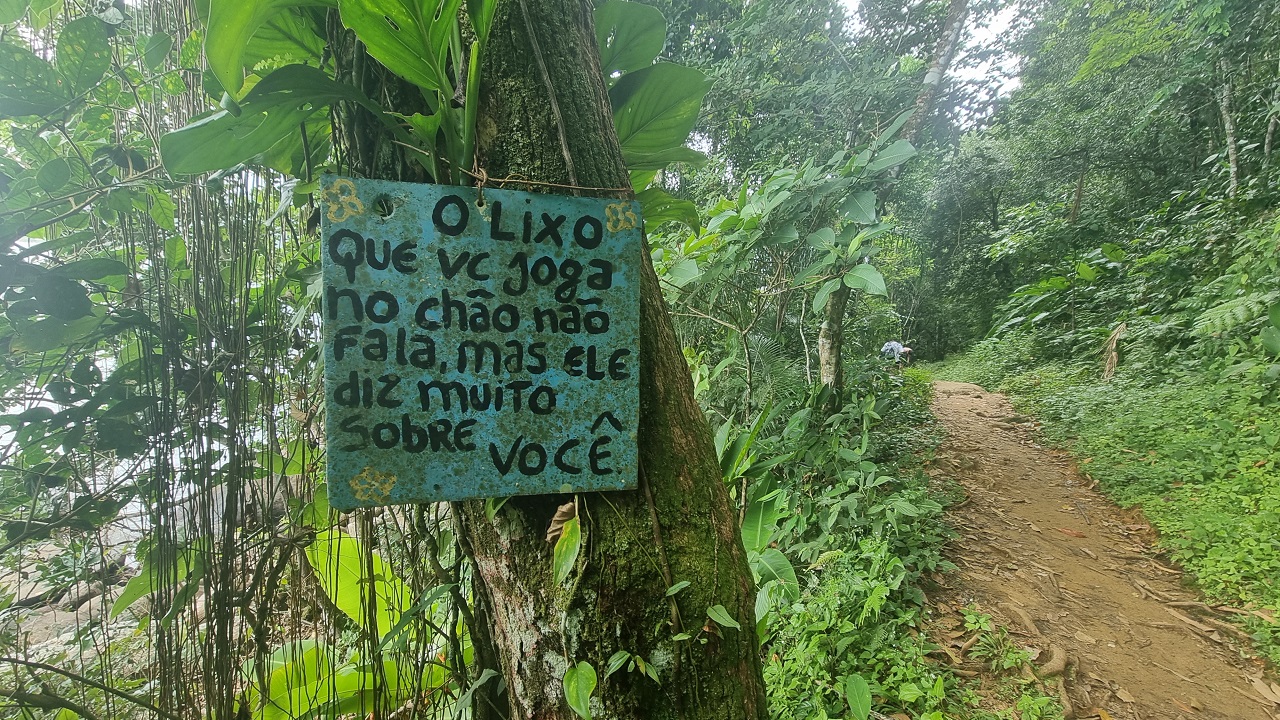 O Lixo
Que vc joga
no chão não
Fala, mas ELE
diz muito
SobRE VOCÊ.